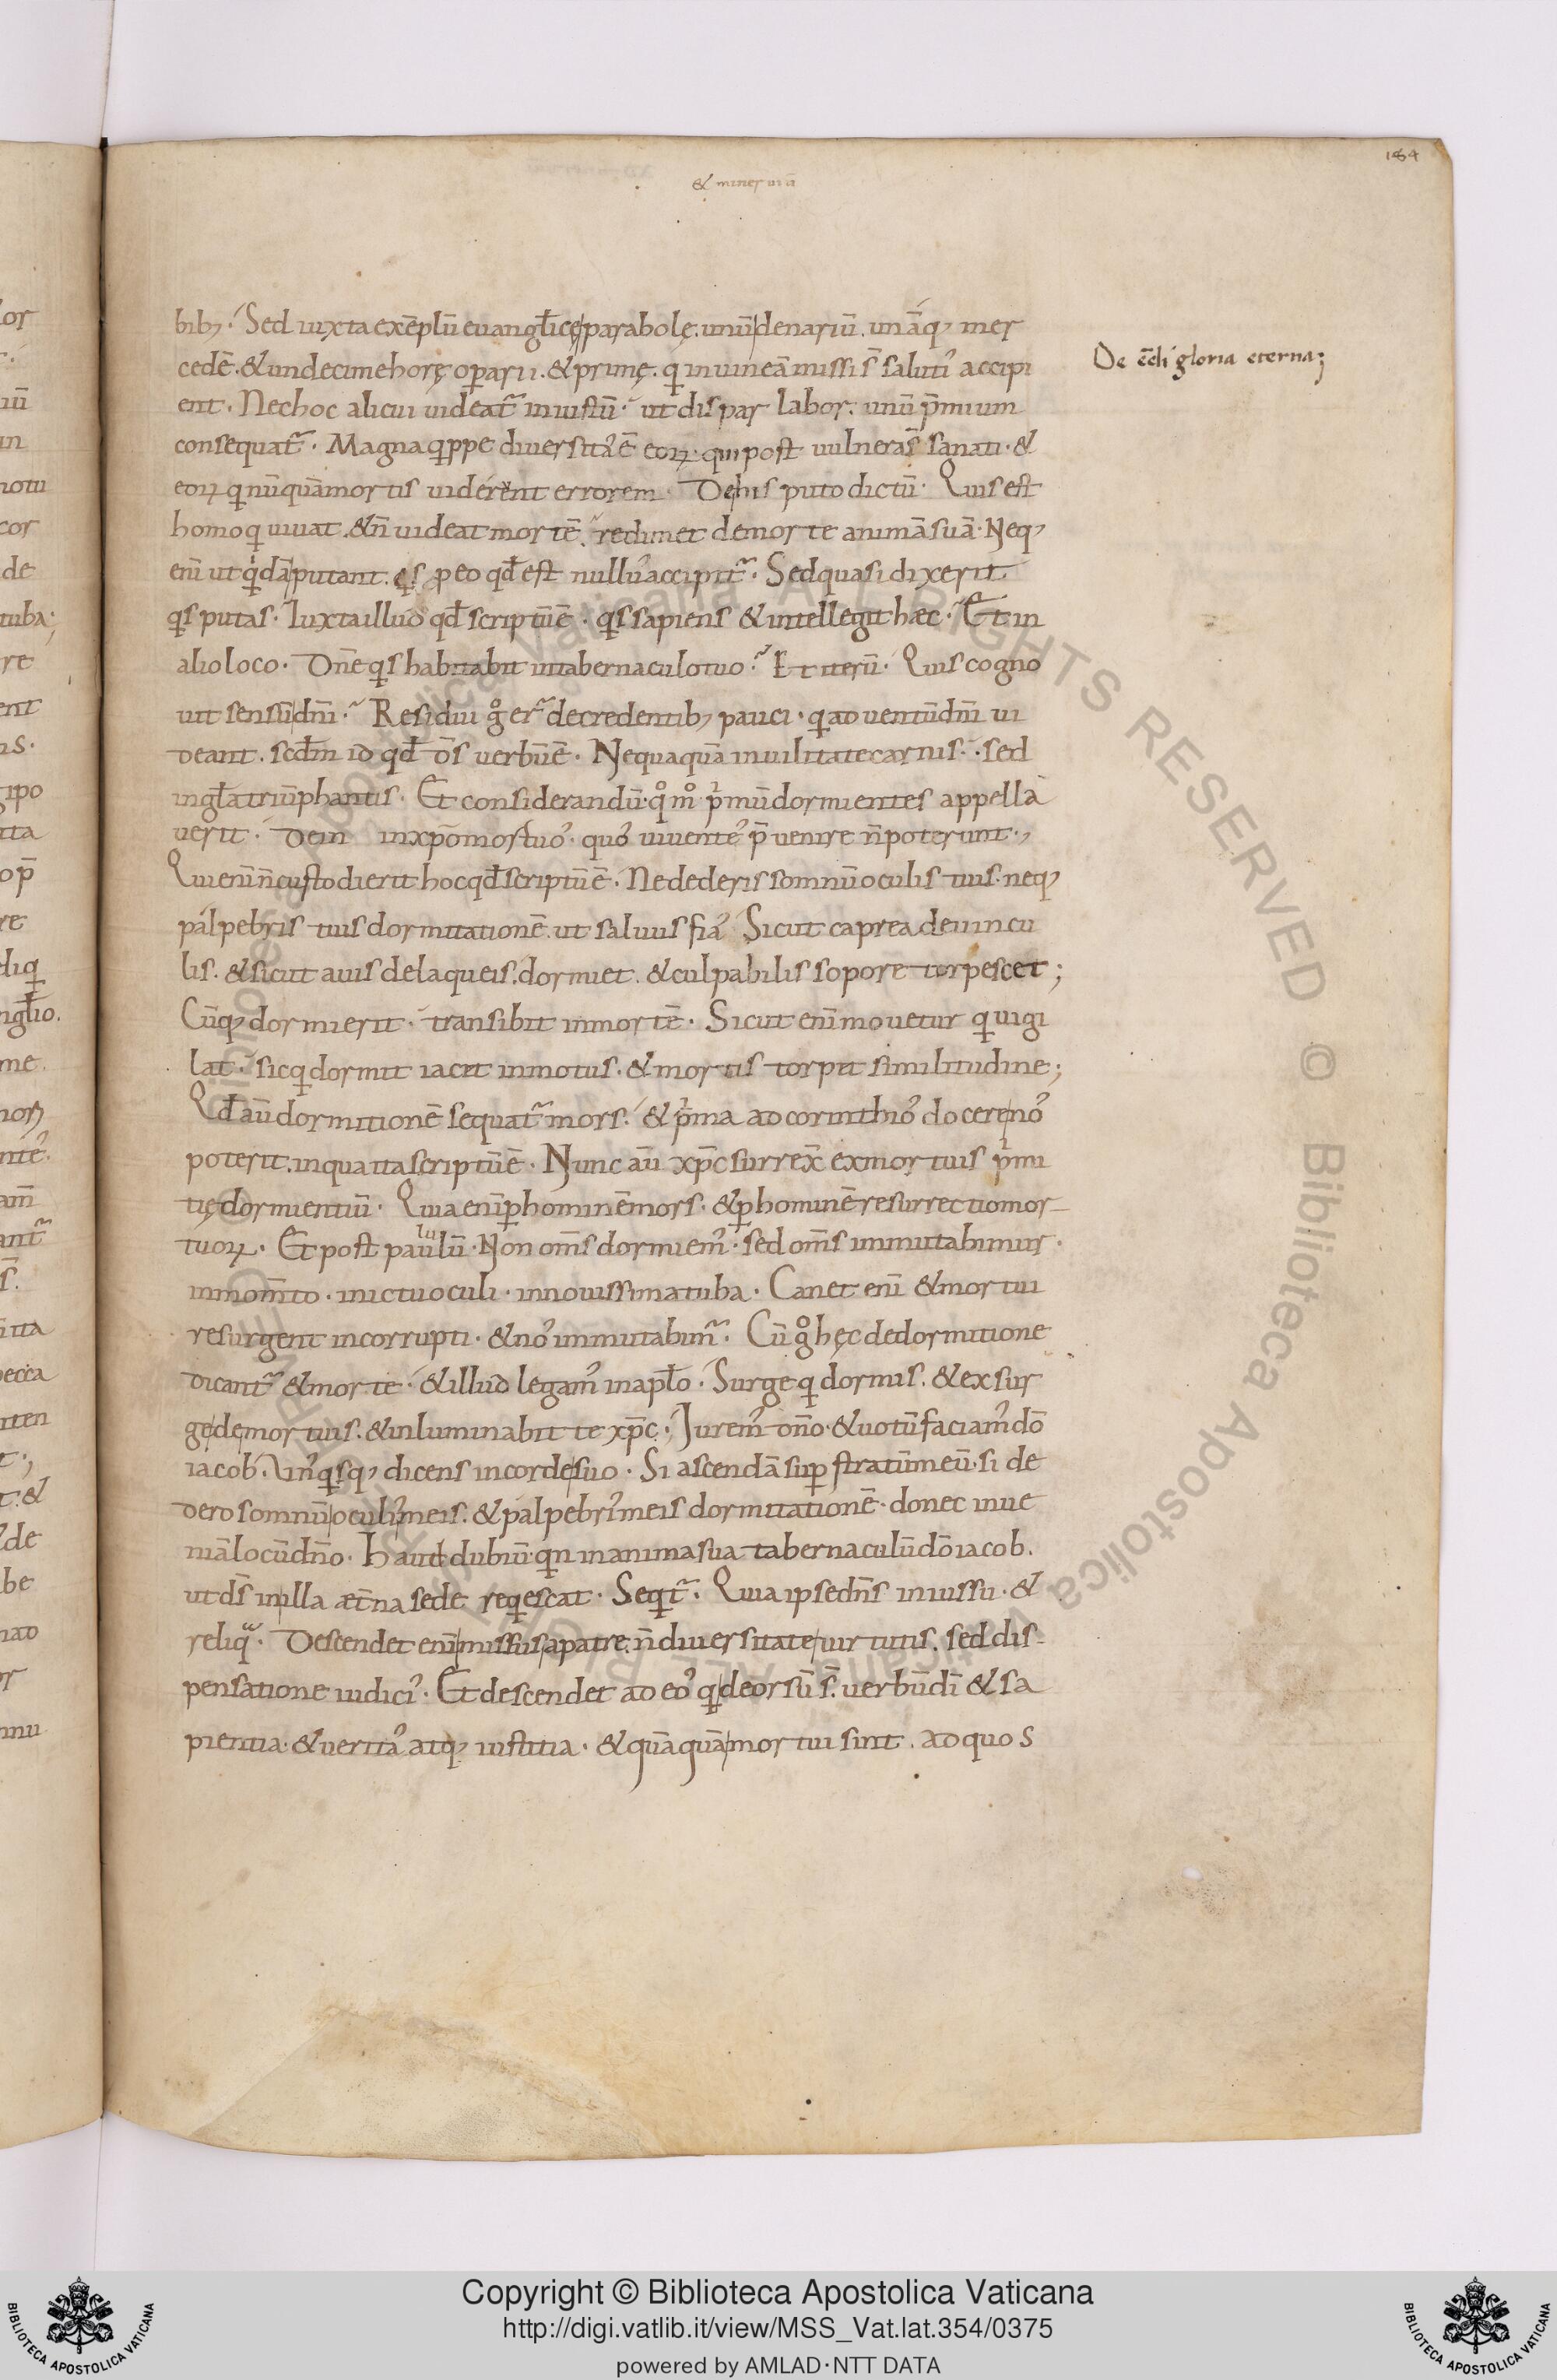 184
& mineruā
bib; Sed iuxta exēplū euangl̄icę parabolę. unū denariū. unāq; mer
De c̄eli gloria eterna;
cedē. & undecime horę oꝑarii. & primę. qͥ in uineā missi s̄ salutiˢ accipi
ent. Nec hoc alicui uideat᷑ iniustū. ut dispar labor. unū p̄mium
consequat᷑. Magna qͥppe diuersitaˢ ē eoꝝ. qui post uulnera s̄ sanati. &
eoꝝ qͥ nūquā mortis uiderent errorem. De his puto dictū. Quis est
homo qͥ uiuat. & n̄ uideat mortē. redimet de morte animā suā. Neq;
enī ut qͥdā putant. qͥs ꝓ eo qd̄ est nulluˢ accipit᷑. Sed quasi dixerit
qͥs putas. Iuxta illud qd̄ scriptū ē. qͥs sapiens & intellegit hæc. Et in
alio loco. Dn̄e qͥs habitabit in tabernaculo tuo. Et iterū. Quis cogno
uit sensū dn̄i. Residui gͦ er᷑ de credentib; pauci. qͥ aduentū dn̄i ui
deant. scd̄m id qd̄ d̄s uerbū ē. Nequaquā in uilitate carnis. sed
in gl̄a triūphantis. Et considerandū. qͦmͦ pͥmū dormientes appella
uerit. Dein in xp̄o mortuoˢ. quoˢ uiuenteˢ p̄uenire n̄ poterunt.,
Qui enī n̄ custodierit hoc qd̄ scriptū ē. Ne dederis somnū oculis tuis. neq;
palpebris tuis dormitationē. ut saluus fiaˢ Sicut caprea de uincu
lis. & sicut auis de laqueis. dormiet. & culpabilis sopore torpescet;
Cūq; dormierit. transibit in mortē. Sicut enī mouetur qͥ uigi
lat. sic qͥ dormit iacet inmotus. & mortis torpet similitudine;
Qd̄ aū dormitionē sequat᷑ mors. & pͥma ad corinthioˢ docere noˢ
poterit. in qua ita scriptū ē. Nunc aū xp̄c surrex̄ ex mortuis pͥmi
tię dormientiū. Quia enī ꝑ hominē mors. & ꝑ hominē resurrectio mor-
tuoꝝ. Et post paululū. Non om̄s dormiemˢ. sed om̄s immutabimur.
in mom̄to. in ictu oculi. in nouissima tuba. Canet enī & mortui
resurgent incorrupti. & noˢ immutabim᷑. Cū gͦ hęc de dormitione
dicant᷑ & morte. & illud legamˢ in apl̄o. Surge qͥ dormis. & exsur
ge de mortuis. & inluminabit te xp̄c. Iuremˢ dn̄o. & uotū faciamˢ dō
iacob. Unˢqͥsq; dicens in corde suo. Si ascendā suꝑ stratū meū. si de
dero somnū oculiˢ meis. & palpebriˢ meis dormitationē. donec inue
niā locū dn̄o. Haut dubiū. qͥn in anima sua tabernaculū dō iacob.
ut d̄s in illa æt̄na sede reqͥescat. Seqͥt᷑. Quia ipse dn̄s in iussu. &
reliqᵃ. Descendet enī missus a patre. n̄ diuersitate uirtutis. sed dis-
pensatione iudiciˢ. Et descendet ad eoˢ qͥ deorsū s̄. uerbū dī & sa
pientia. & ueritaˢ atq; iustitia. & quāquā mortui sint. ad quos
Copyright © Biblioteca Apostolica Vaticana
http://digi.vatlib.it/view/MSS_Vat.lat.354/0375
powered by AMLAD·NTT DATA
BIBLIOTECA APOSTOLICA VATICANA
BIBLIOTECA APOSTOLICA VATICANA